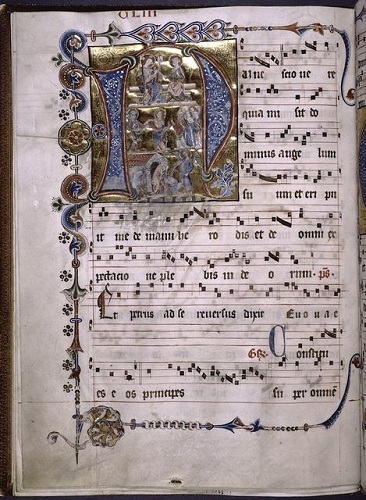 GLIII
Nunc scio ve re
quia mi sit do
minus ange lum
su um et eri pu
it me de manu he ro dis et de omni ex
pectacio ne ple bis iu de o rum. ps.
Et petrus ad se reversus dixit Euouae
Constitu
es e os principes su per omnē